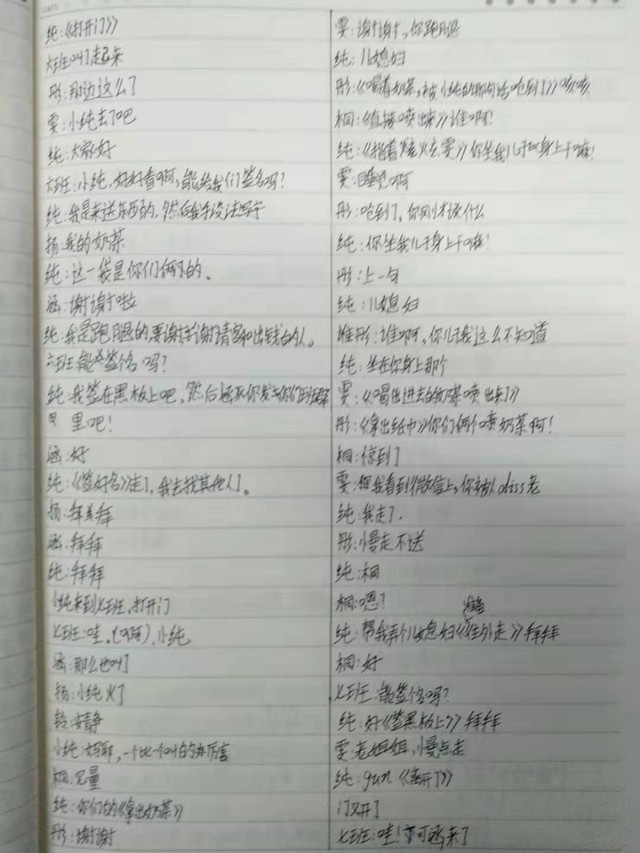 纯:《打开门》
六班叫了起来
彤:那边这么了
雯:小纯去了吧
纯:大家好
六班:小纯,好好看啊,能给我们签名吗?
纯:我是来送东西的,然后我手没法写字
扬:我的奶茶
纯:这一袋是你们俩的、
涵:谢谢啦
纯:我是跑腿的,要谢谢请客和出钱的人。
六班:能签名吗?
纯:我签在黑板上吧,然后涵你发去你们班群
里吧!
涵:好
纯:《签好名》走了,我去找其他人。
扬:拜拜
涵:拜拜
纯:拜拜
小纯来到七班,打开门
七班:哇,(啊啊),小纯
涵:那么也叫了
扬:小纯火了
铃:安静
小纯:妈耶,一个比一个叫的厉害
桐:定量
纯:你们的《拿出奶茶》
彤:谢谢
雯:谢谢,你跑腿
纯:儿媳妇
彤:《喝着奶茶,被小纯的那句话呛到了》咳咳
桐:《直接喷出来》谁啊!
纯:《指着雯》你坐我儿子身上干嘛!
雯:睡觉啊
彤:呛到了,你刚才说什么
纯:你坐我儿子身上干嘛!
彤:上一句
纯:儿媳妇
雯彤:谁啊,你儿子我这么不知道
纯:坐在你身上那个
雯:《喝出进去的奶茶喷出来了》
彤:《拿出纸巾》你们俩个喷奶茶啊!
桐:惊到了
雯:我看到《微信上,你被人diss老
纯:我走了.
彤:慢走不送
纯:桐
桐:嗯?
纯:帮我看儿媳妇《往外走》拜拜
桐:好
七班:能签名吗?
纯:好《签黑板上》拜拜
雯:老姐姐,慢点走
纯:gun《离开了》
门又开了
七班:哇!可涵来了